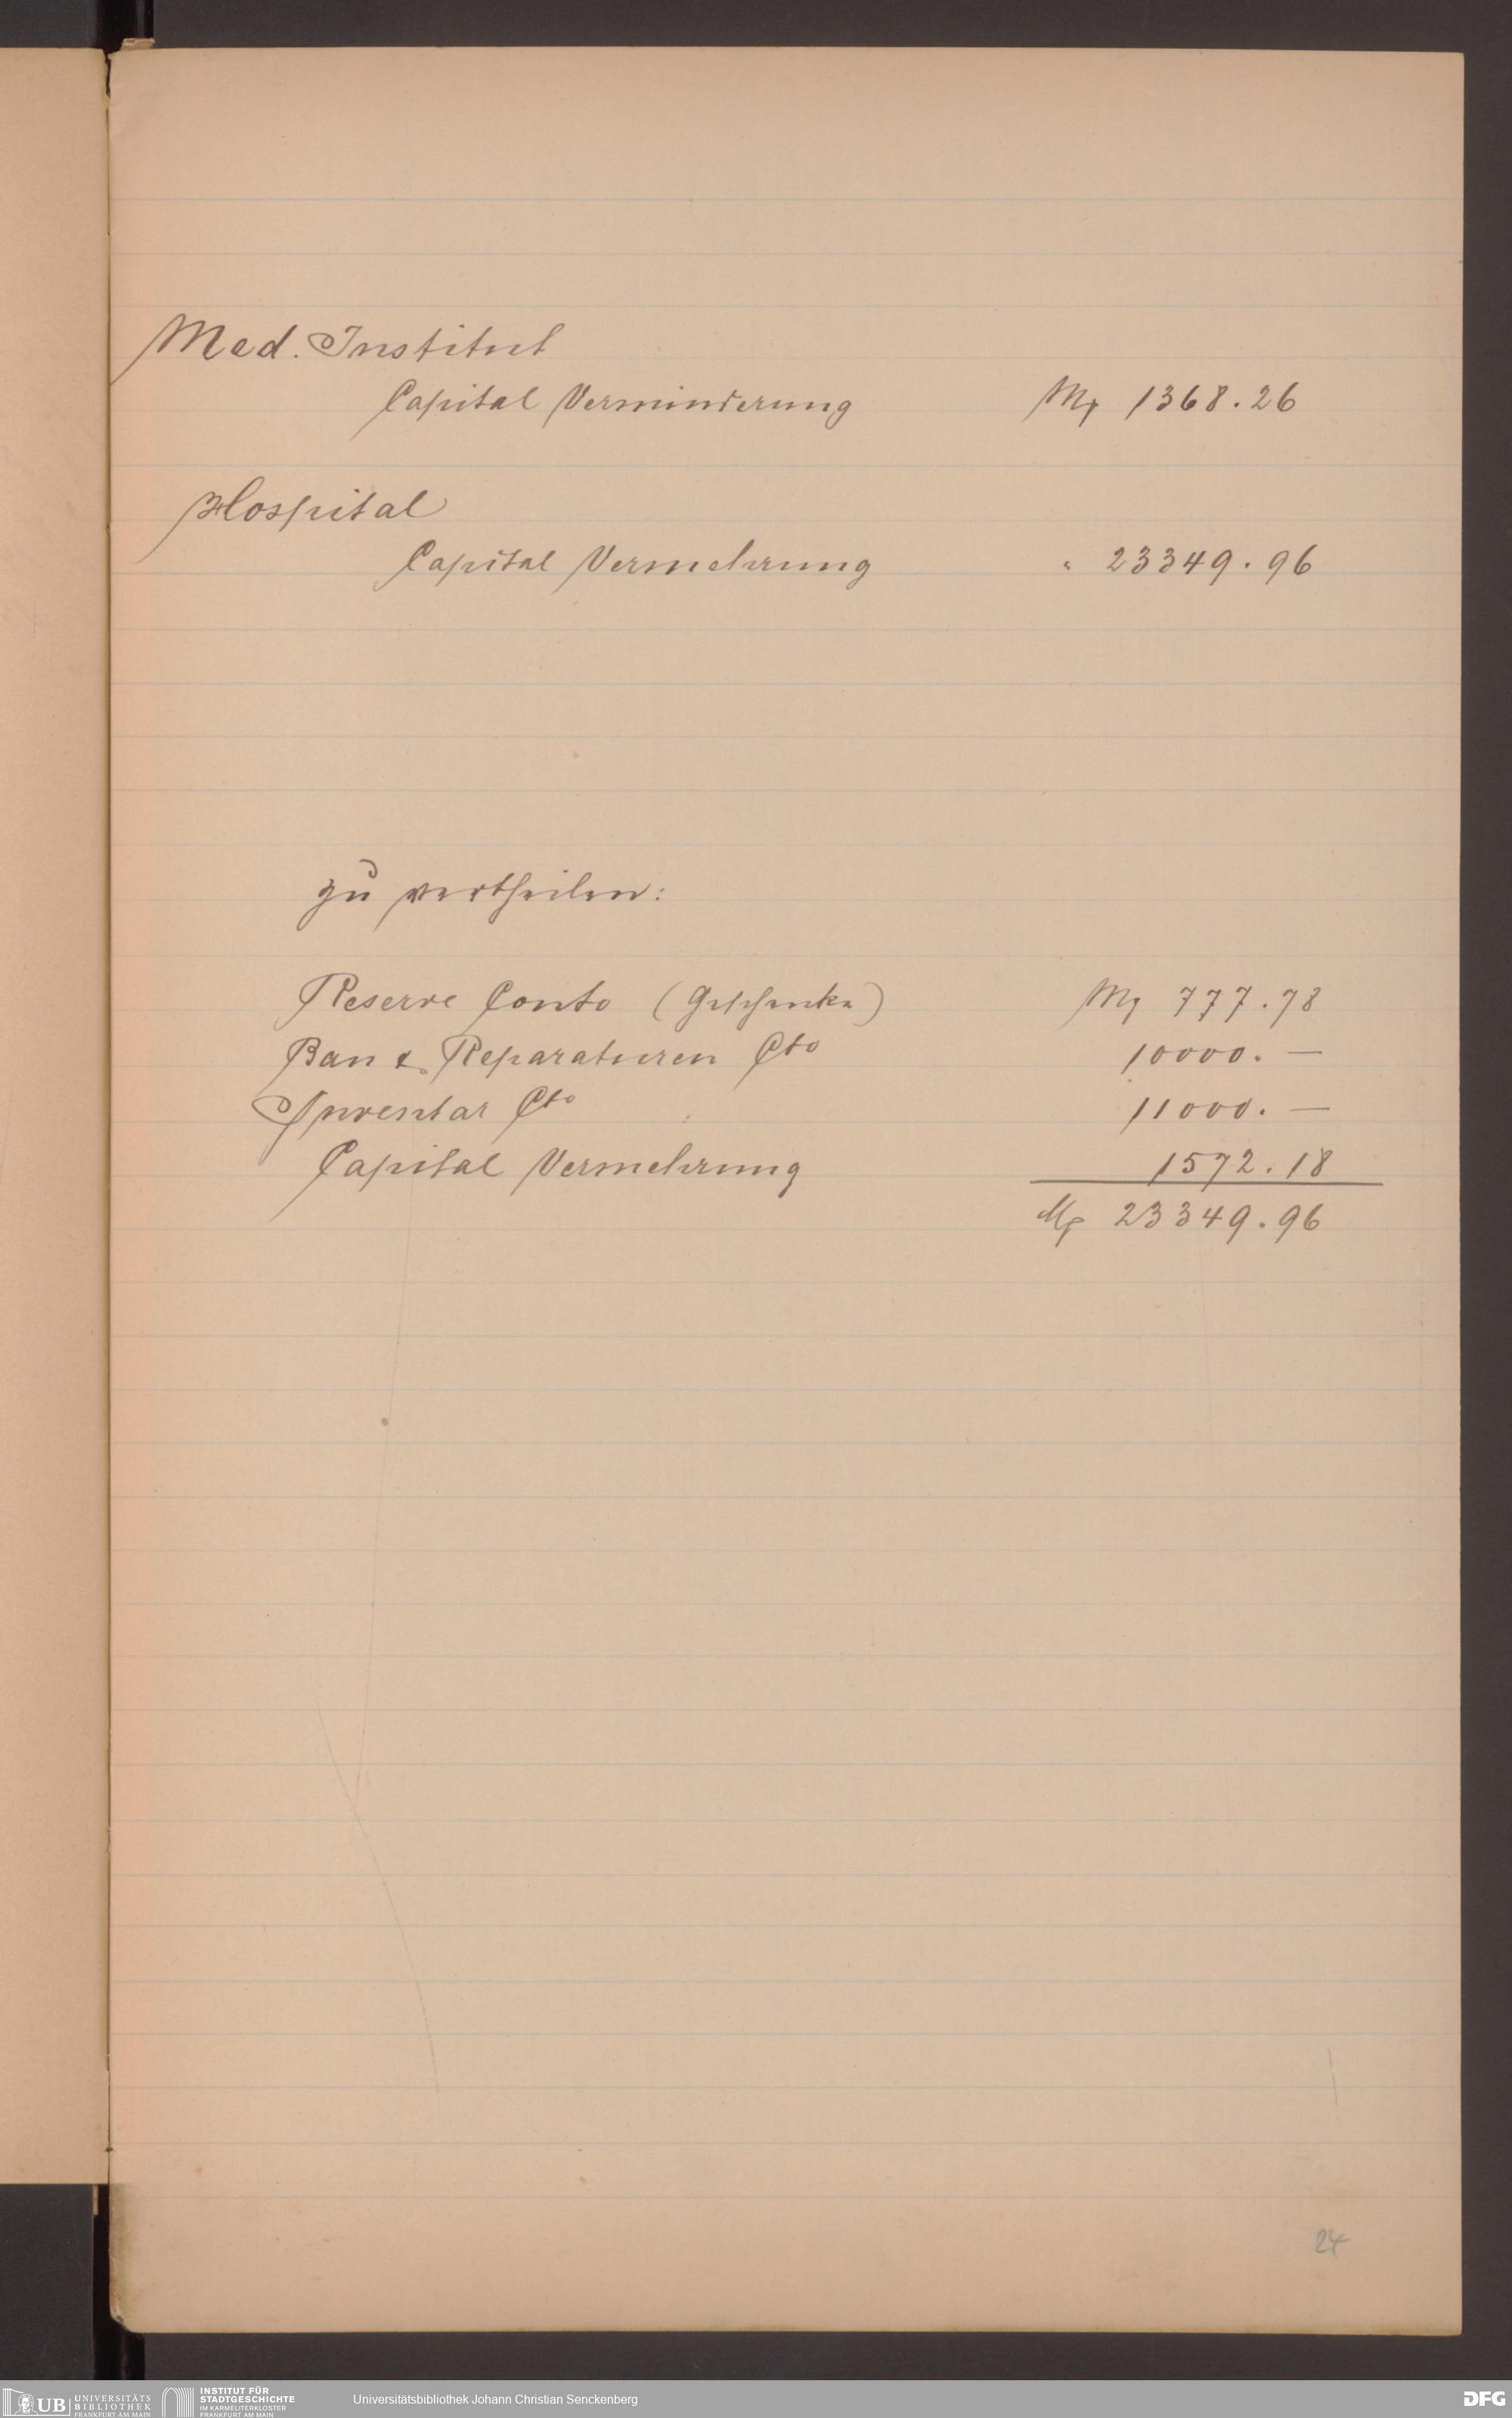 Med. Institut
Capital Verminderung M 1368.26
Hospital
Capital Vermehrung " 23349.96
zu vertheilen:
Reserve Conto (Geschenke) M 777.78
Bau & Reparaturen Cto 10000. —
Inventar Cto 11000. —
Capital Vermehrung 1572.18
M 23349.96
24
UB UNIVERSITÄTS BIBLIOTHEK FRANKFURT AM MAIN
INSTITUT FÜR STADTGESCHICHTE IM KARMELITERKLOSTER FRANKFURT AM MAIN
Universitätsbibliothek Johann Christian Senckenberg
DFG